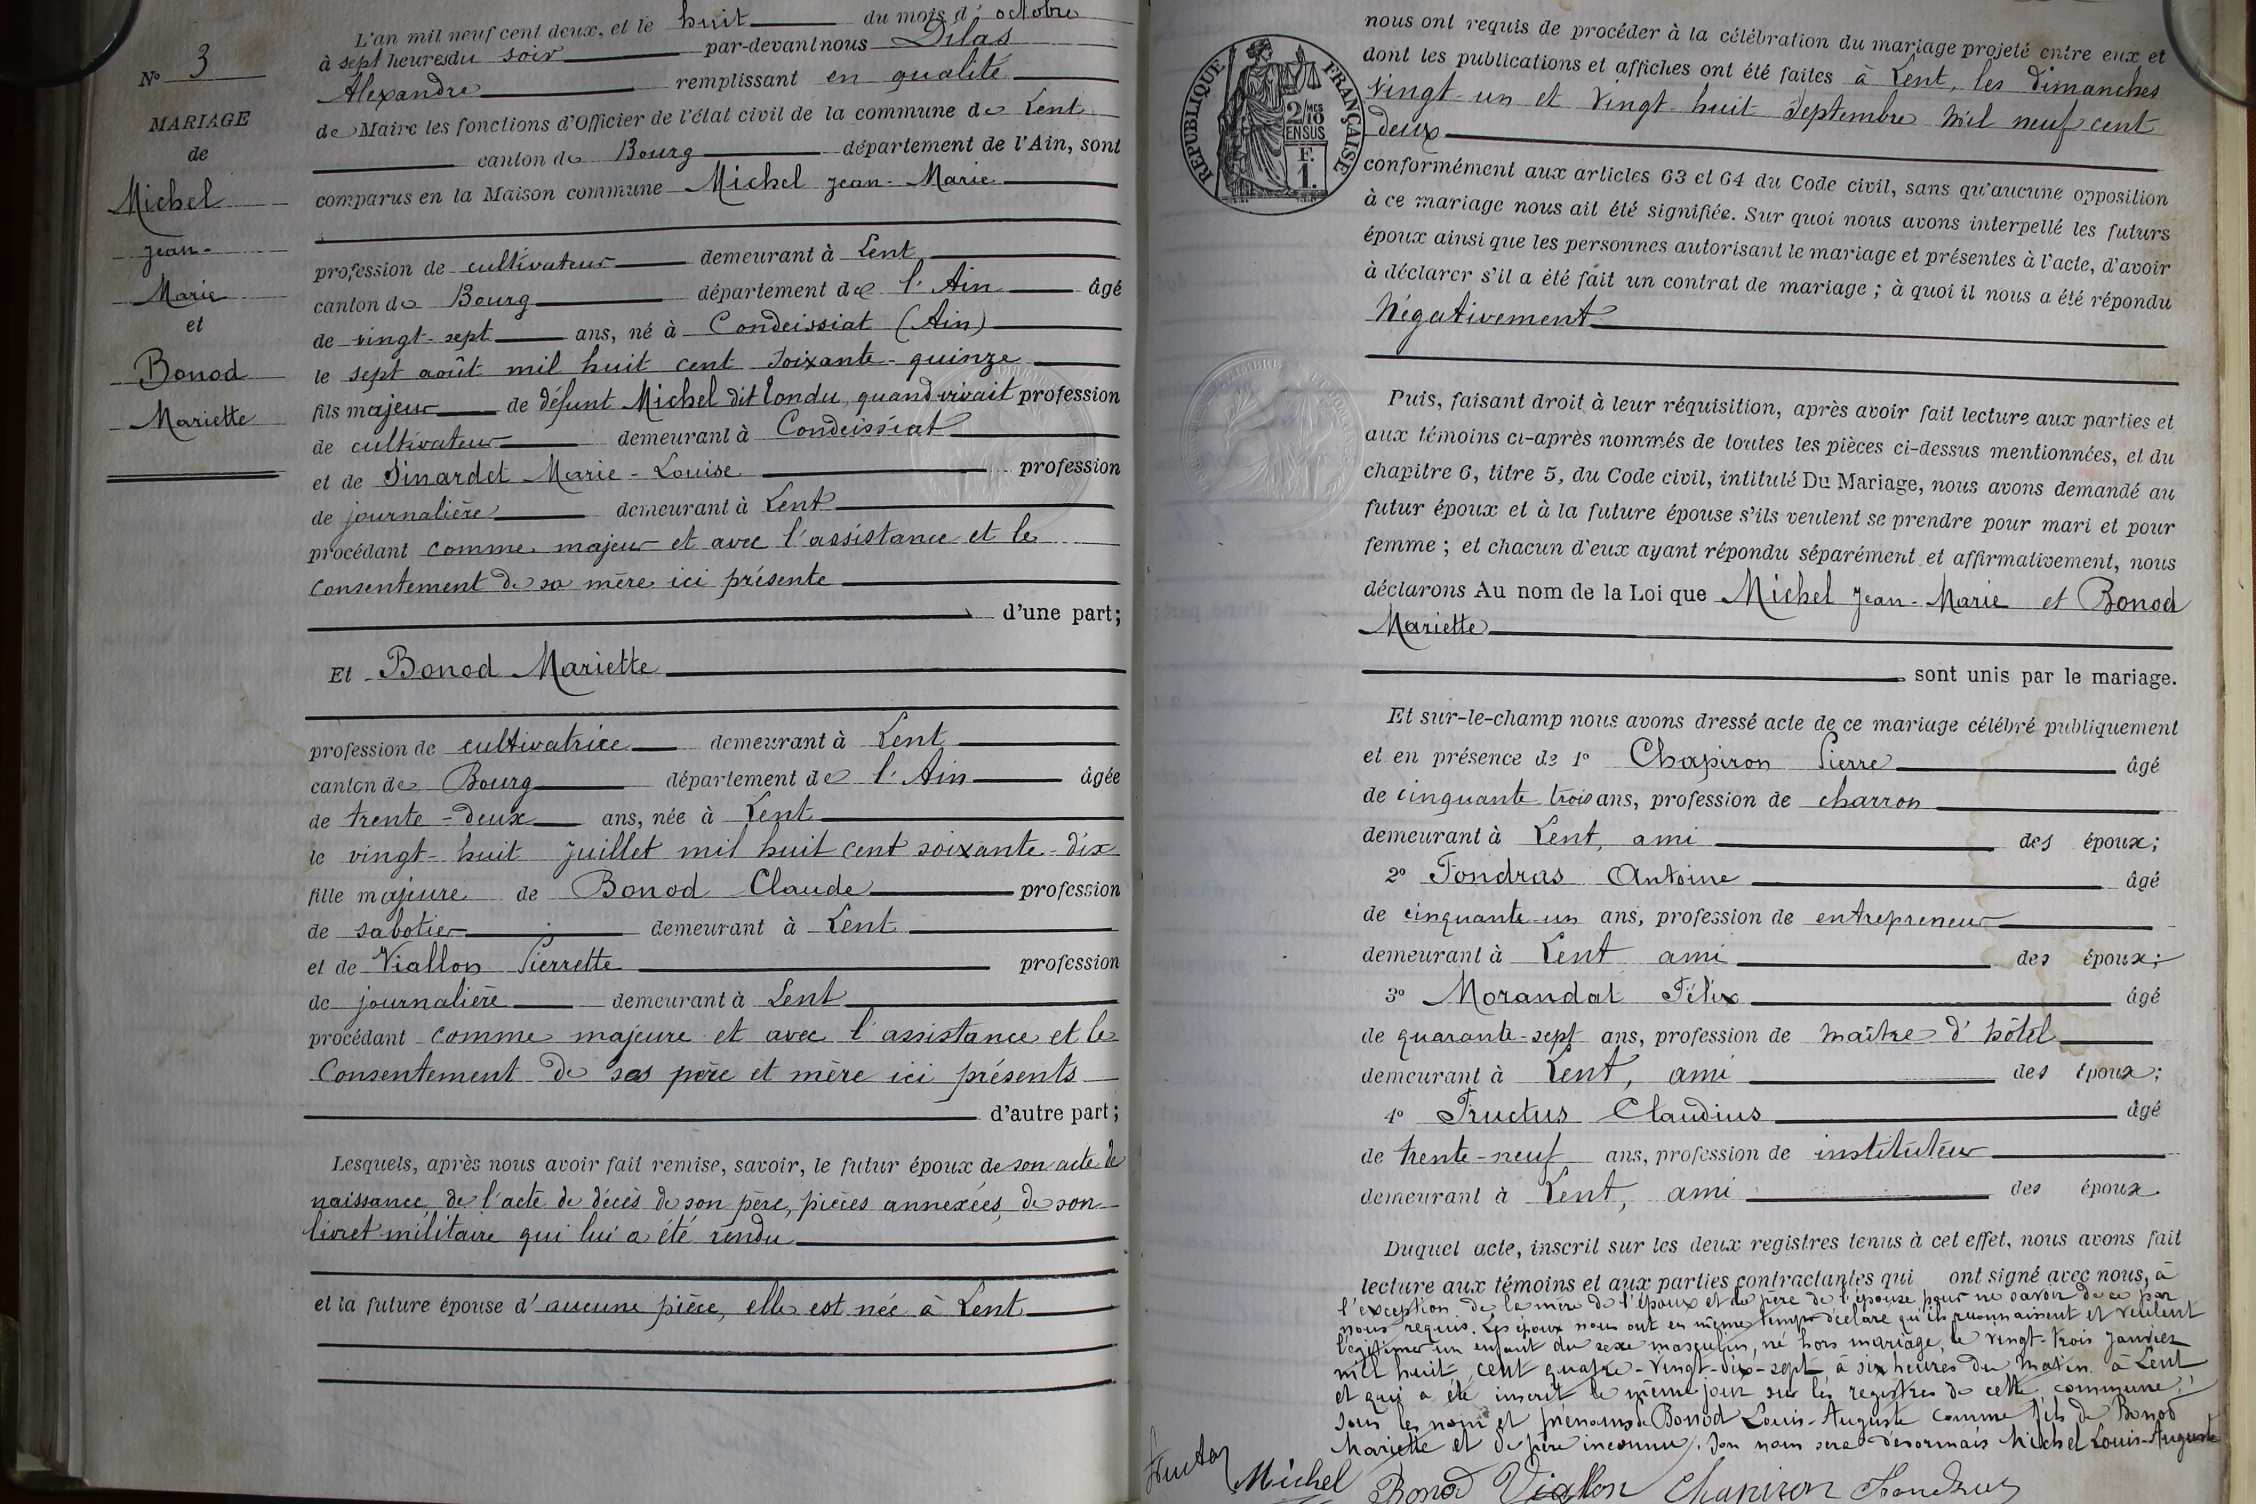 L'an mil neuf cent deux, et le huit du mois d'octobre
à sept heures du soir par-devant nous Dilas
Alexandre remplissant en qualité
de Maire les fonctions d'Officier de l'état civil de la commune de Lent
canton de Bourg département de l'Ain, sont
comparus en la Maison commune Michel Jean-Marie
profession de cultivateur demeurant à Lent
canton de Bourg département de l'Ain âgé
de vingt-sept ans, né à Condeissiat (Ain)
le sept août mil huit cent soixante-quinze
fils majeur de défunt Michel dit Londu, quand vivait profession
de cultivateur demeurant à Condeissiat
et de Sinardet Marie-Louise profession
de journalière demeurant à Lent
procédant comme majeur et avec l'assistance et le
consentement de sa mère ici présente
d'une part;
Et Bonod Mariette
profession de cultivatrice demeurant à Lent
canton de Bourg département de l'Ain âgée
de trente-deux ans, née à Lent
le vingt-huit juillet mil huit cent soixante-dix
fille majeure de Bonod Claude profession
de sabotier demeurant à Lent
et de Viallon Pierrette profession
de journalière demeurant à Lent
procédant comme majeure et avec l'assistance et le
Consentement de ses père et mère ici présents
d'autre part;
Lesquels, après nous avoir fait remise, savoir, le futur époux de son acte de
naissance, de l'acte de décès de son père, pièces annexées, de son
livret militaire qui lui a été rendu
et la future épouse d'aucune pièce, elle est née à Lent
N° 3
MARIAGE
de
Michel
Jean-
Marie
et
Bonod
Mariette
RÉPUBLIQUE FRANÇAISE
2/10 MES
EN SUS
F.
1.
nous ont requis de procéder à la célébration du mariage projeté entre eux et
dont les publications et affiches ont été faites à Lent, les dimanches
vingt-un et vingt-huit Septembre mil neuf cent
deux
conformément aux articles 63 et 64 du Code civil, sans qu'aucune opposition
à ce mariage nous ait été signifiée. Sur quoi nous avons interpellé les futurs
époux ainsi que les personnes autorisant le mariage et présentes à l'acte, d'avoir
à déclarer s'il a été fait un contrat de mariage; à quoi il nous a été répondu
Négativement
Puis, faisant droit à leur réquisition, après avoir fait lecture aux parties et
aux témoins ci-après nommés de toutes les pièces ci-dessus mentionnées, et du
chapitre 6, titre 5, du Code civil, intitulé Du Mariage, nous avons demandé au
futur époux et à la future épouse s'ils veulent se prendre pour mari et pour
femme; et chacun d'eux ayant répondu séparément et affirmativement, nous
déclarons Au nom de la Loi que Michel Jean-Marie et Bonod
Mariette
sont unis par le mariage.
Et sur-le-champ nous avons dressé acte de ce mariage célébré publiquement
et en présence de 1° Chapiron Pierre âgé
de cinquante trois ans, profession de charron
demeurant à Lent, ami des époux;
2° Fondras Antoine âgé
de cinquante-un ans, profession de entrepreneur
demeurant à Lent ami des époux;
3° Morandat Félix âgé
de quarante-sept ans, profession de maître d'hôtel
demeurant à Lent, ami des époux;
4° Fructus Claudius âgé
de trente-neuf ans, profession de instituteur
demeurant à Lent, ami des époux
Duquel acte, inscrit sur les deux registres tenus à cet effet, nous avons fait
lecture aux témoins et aux parties contractantes qui ont signé avec nous, à
l'exception de la mère de l'époux et du père de l'épouse pour ne savoir de ce par
nous requis. Les époux nous ont en même temps déclaré qu'ils reconnaissent et veulent
légitimer un enfant du sexe masculin, né hors mariage, le vingt-trois janvier
mil huit cent quatre-vingt-dix-sept à six heures du matin à Lent
et qui a été inscrit le même jour sur les registres de cette commune
sous les nom et prénoms de Bonod Louis-Auguste comme fils de Bonod
Mariette et de père inconnu. Son nom sera désormais Michel Louis-Auguste
Michel Bonod Viallon Chapiron